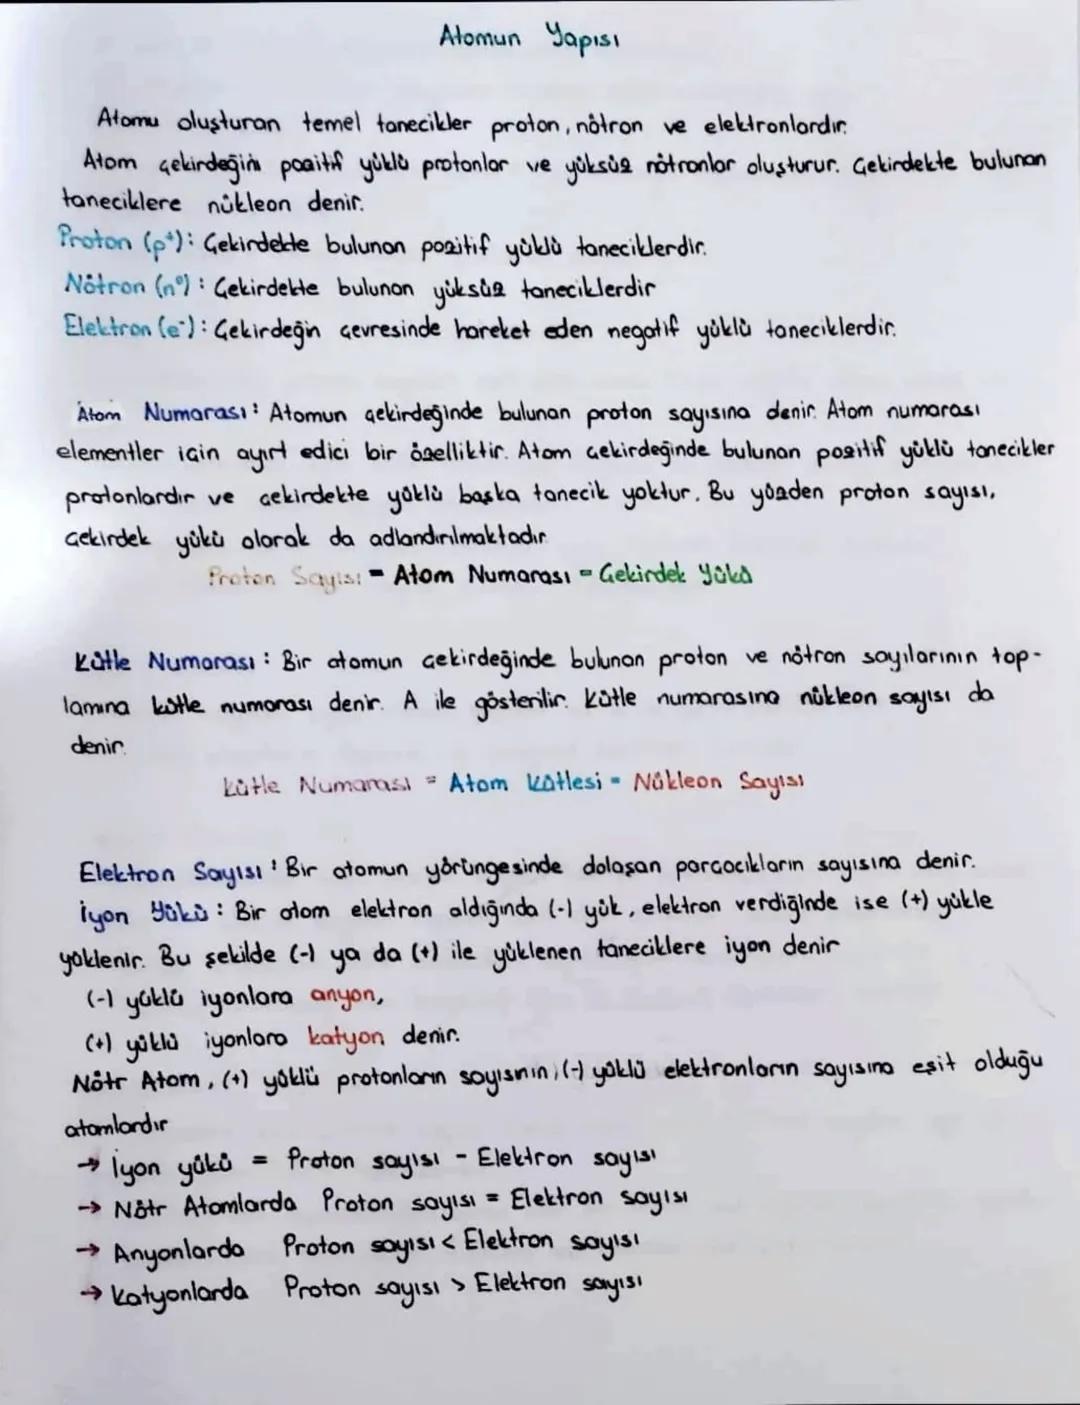 Atomun Yapısı
Atomu oluşturan temel tanecikler proton, nötron ve elektronlardır.
Atom çekirdeğini pozitif yüklü protonlar ve yüksüz nötronlar oluşturur. Çekirdekte bulunan
taneciklere nükleon denir.
Proton (p⁺): Çekirdekte bulunan pozitif yüklü taneciklerdir.
Nötron (n⁰): Çekirdekte bulunan yüksüz taneciklerdir
Elektron (e⁻): Çekirdeğin çevresinde hareket eden negatif yüklü taneciklerdir.
Atom Numarası: Atomun çekirdeğinde bulunan proton sayısına denir. Atom numarası
elementler için ayırt edici bir özelliktir. Atom çekirdeğinde bulunan pozitif yüklü tanecikler
protonlardır ve çekirdekte yüklü başka tanecik yoktur. Bu yüzden proton sayısı,
çekirdek yükü olarak da adlandırılmaktadır
Proton Sayısı = Atom Numarası = Çekirdek Yükü
Kütle Numarası: Bir atomun çekirdeğinde bulunan proton ve nötron sayılarının top-
lamına kütle numarası denir. A ile gösterilir. Kütle numarasına nükleon sayısı da
denir.
Kütle Numarası = Atom Kütlesi = Nükleon Sayısı
Elektron Sayısı: Bir atomun yörüngesinde dolaşan parçacıkların sayısına denir.
İyon Yükü: Bir atom elektron aldığında (-) yük, elektron verdiğinde ise (+) yükle
yüklenir. Bu şekilde (-) ya da (+) ile yüklenen taneciklere iyon denir
(-) yüklü iyonlara anyon,
(+) yüklü iyonlara katyon denir.
Nötr Atom, (+) yüklü protonların sayısının, (-) yüklü elektronların sayısına eşit olduğu
atomlardır
→ İyon yükü = Proton sayısı - Elektron sayısı
→ Nötr Atomlarda Proton sayısı = Elektron sayısı
→ Anyonlarda Proton sayısı < Elektron sayısı
→ Katyonlarda Proton sayısı > Elektron sayısı